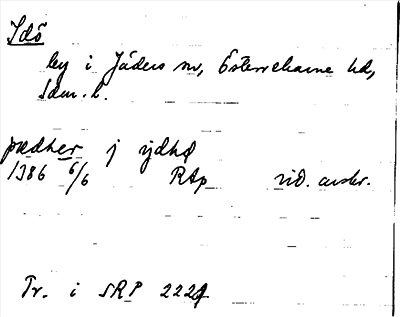 Idö
by i Jäders sn, Österrekarne hd,
Sdm. l.
pædher j ydhø
1386 6/6 RAp vid. avskr.
Tr. i SRP 2229